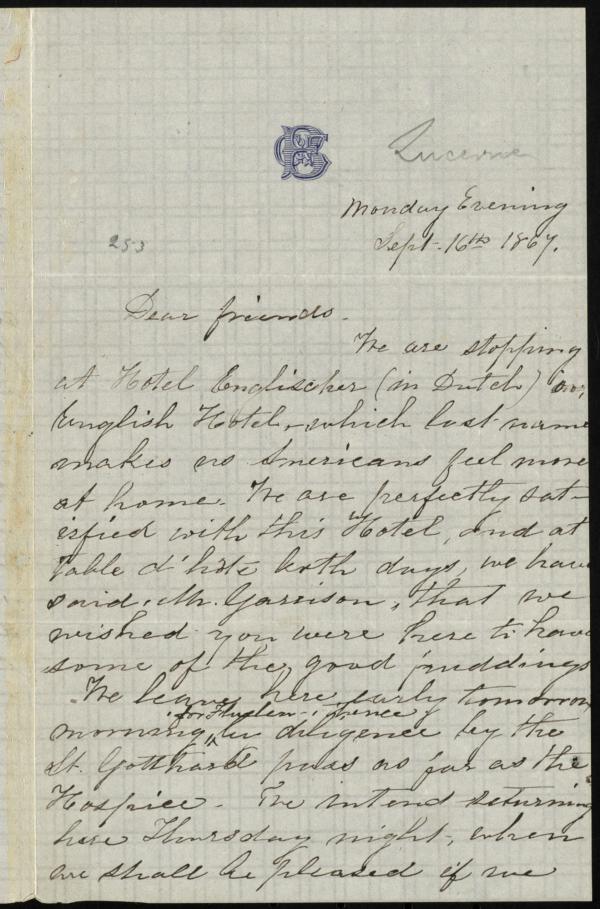 Lucerne
Monday Evening
Sept. 16th 1867.
253
Dear friends.
We are stopping
at Hotel Englischer (in Dutch) or,
English Hotel, which last name
makes us Americans feel more
at home. We are perfectly sat-
isfied with this Hotel, and at
Table d'hôte both days, we have
said, Mr. Garrison, that we
wished you were here to have
some of the good puddings.
We leave here early tomorrow
for Fluelen; thence
morning, in diligence by the
St. Gotthard pass as far as the
Hospice. We intend returning
here Thursday night, when
we shall be pleased if we